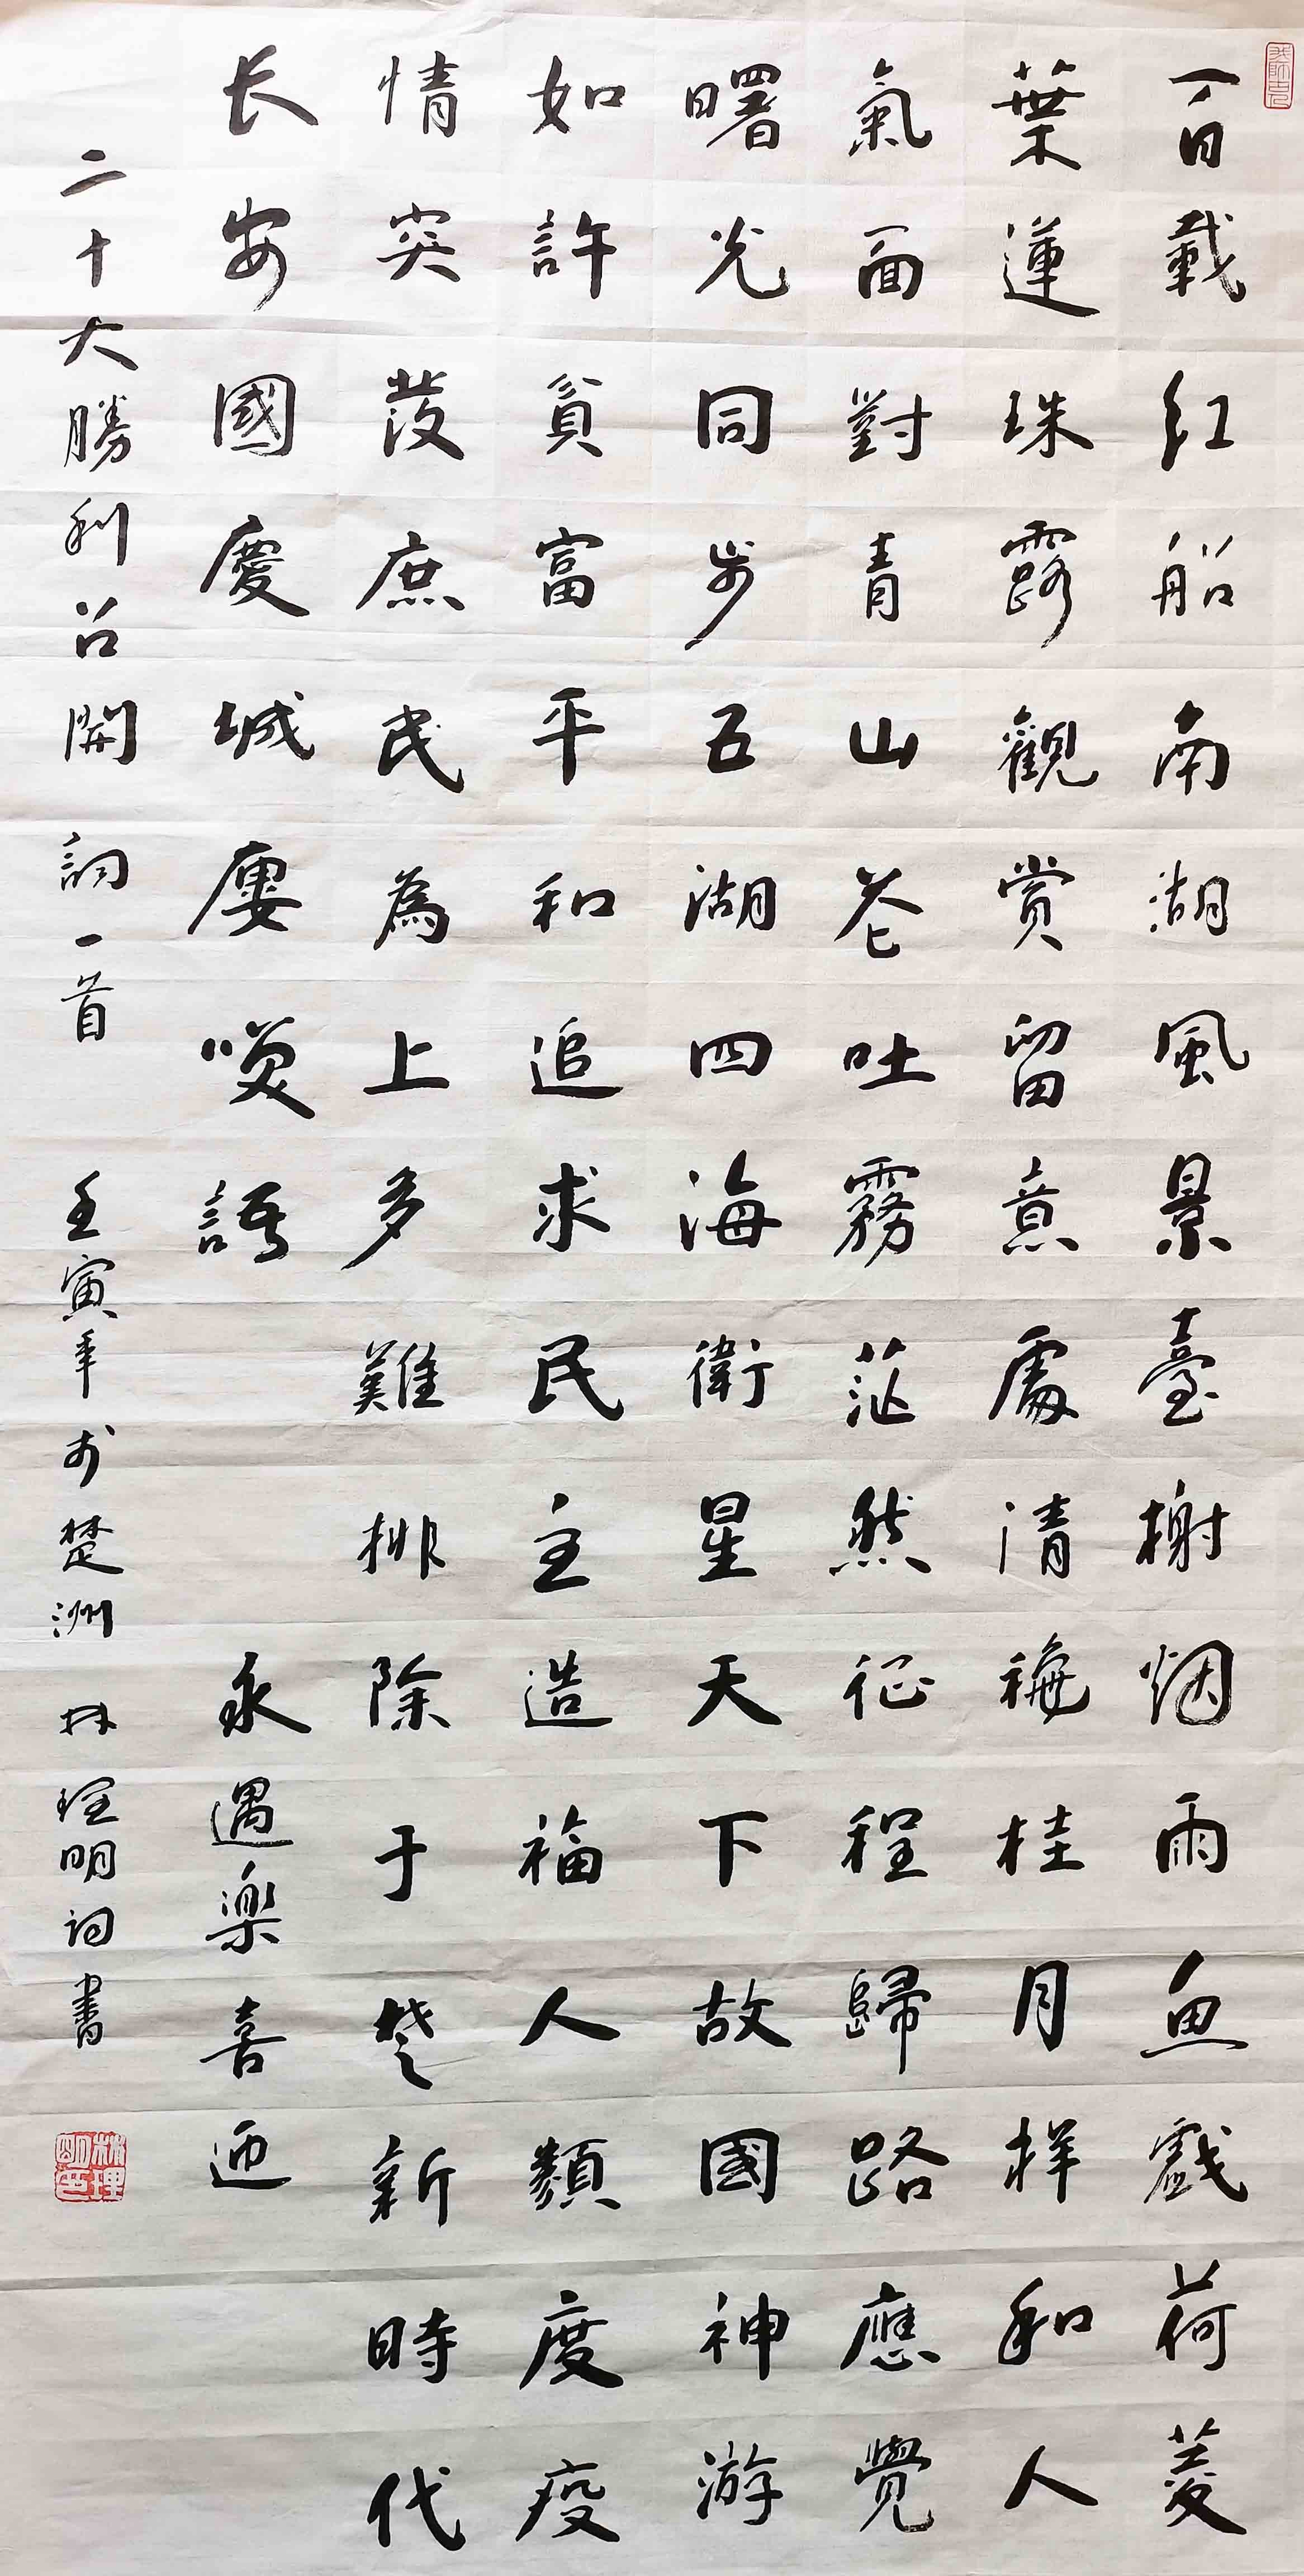 百載紅船南湖風景臺榭烟雨魚戲荷菱
葉蓮珠露觀賞留意處清穐桂月祥和人
氣面對青山巷吐霧茫然征程歸路應覺
曙光同步五湖四海衛星天下故國神游
如許貧富平和追求民主造福人類度疫
情突发庶民為上多難排除于楚新時代
长安國慶城廔嘆語 永遇樂 喜迎
二十大勝利召開 詞一首 壬寅年于楚洲 林理明词書
林理明